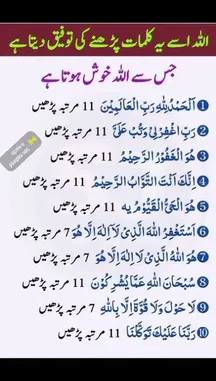 اللہ اسے یہ کلمات پڑھنے کی توفیق دیتا ہے
جس سے اللہ خوش ہوتا ہے
1 اَلْحَمْدُ لِلّٰهِ رَبِّ الْعَالَمِيْنَ 11 مرتبہ پڑھیں
2 رَبِّ اغْفِرْلِيْ وَتُبْ عَلَيَّ 11 مرتبہ پڑھیں
3 هُوَ الْغَفُوْرُ الرَّحِيْمُ 11 مرتبہ پڑھیں
4 اِنَّكَ اَنْتَ التَّوَّابُ الرَّحِيْمُ 11 مرتبہ پڑھیں
5 هُوَ الْحَيُّ الْقَيُّوْمُ یہ 11 مرتبہ پڑھیں
6 اَسْتَغْفِرُ اللهَ الَّذِيْ لَا اِلٰهَ اِلَّا هُوَ 7 مرتبہ پڑھیں
7 هُوَ اللهُ الَّذِيْ لَا اِلٰهَ اِلَّا هُوَ 7 مرتبہ پڑھیں
8 سُبْحَانَ اللهِ عَمَّا يُشْرِكُوْنَ 11 مرتبہ پڑھیں
9 لَا حَوْلَ وَلَا قُوَّةَ اِلَّا بِاللهِ 7 مرتبہ پڑھیں
10 رَبَّنَا عَلَيْكَ تَوَكَّلْنَا 11 مرتبہ پڑھیں